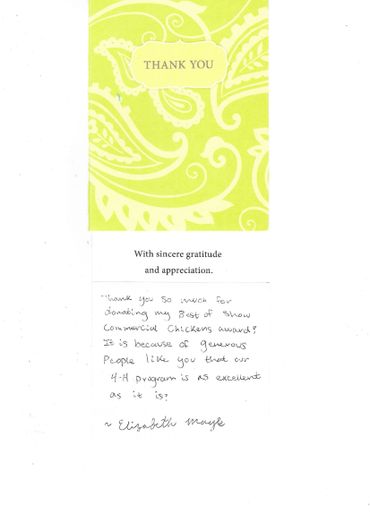 THANK YOU
With sincere gratitude
and appreciation.
Thank you so much for
donating my Best of Show
Commercial Chickens award!
It is because of generous
People like you that our
4-H program is as excellent
as it is!
~ Elizabeth